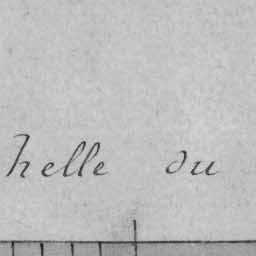 helle du